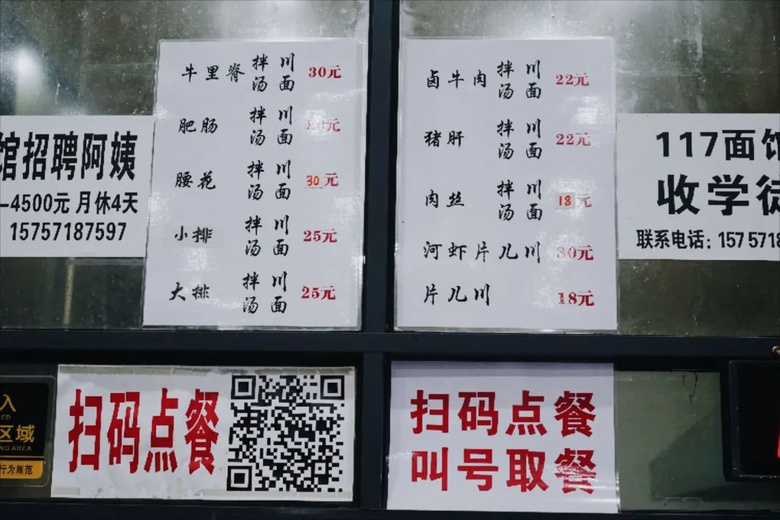 馆招聘阿姨
-4500元 月休4天
15757187597
牛里脊 拌川 30元
汤面
肥肠 拌川
汤面
腰花 拌川 30元
汤面
小排 拌川 25元
汤面
大排 拌川 25元
汤面
卤牛肉 拌川 22元
汤面
猪肝 拌川 22元
汤面
肉丝 拌川 18元
汤面
河虾片儿川 30元
片儿川 18元
117面馆
收学徒
联系电话: 1575718
入
区域
行为规范
扫码点餐
扫码点餐
叫号取餐